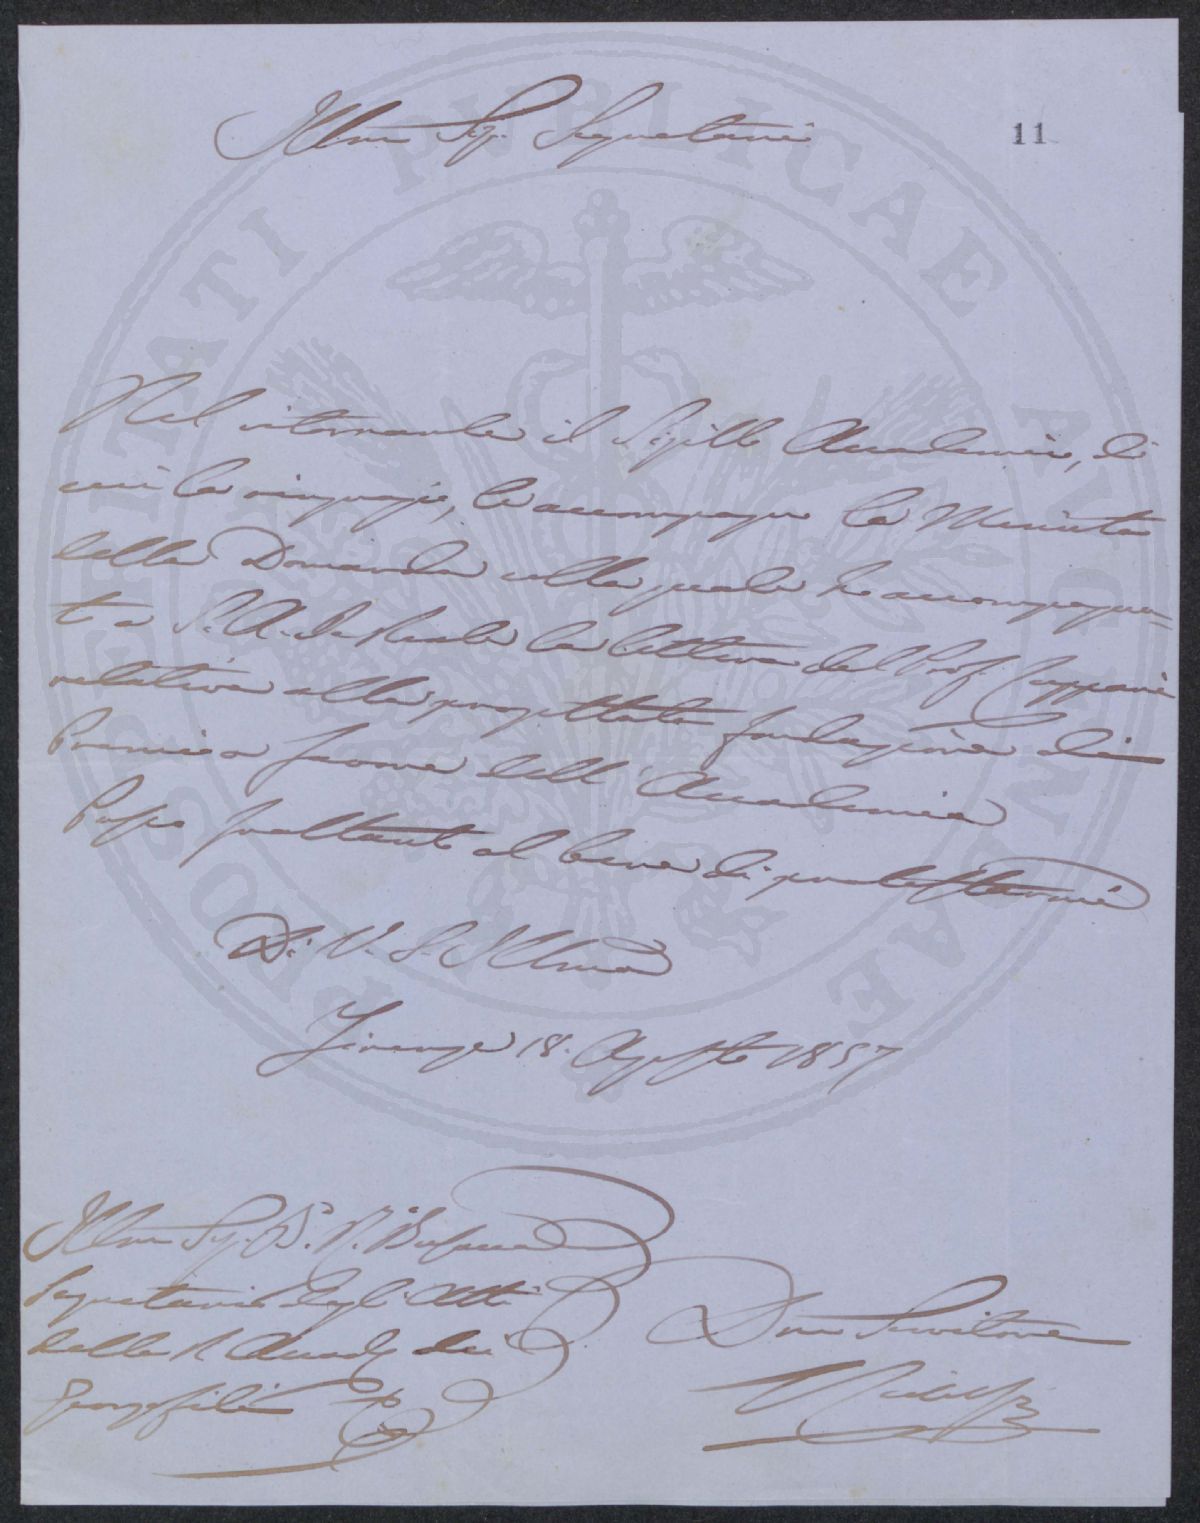 Illmo Sig. Segretario
11
Nel ritornarle il Sigillo Accademico, di
cui la ringrazio, le accompagno la Minuta
della Domanda colla quale ho accompagna=
to a S. A. I. e Reale la lettera del Prof. Cuppari
relativa alla progettata fondazione di un
Premio a nome dell' Accademia
Passo frattanto al bene di protestarmi
Di V. S. Illma
Firenze 18. Agosto 1857
Illmo Sig.
Segretario degli Atti
della R. Accad. dei
Georgofili
Dmo Servitore
Ridolfi
PROSPERITATI PUBLICAE AUGENDAE